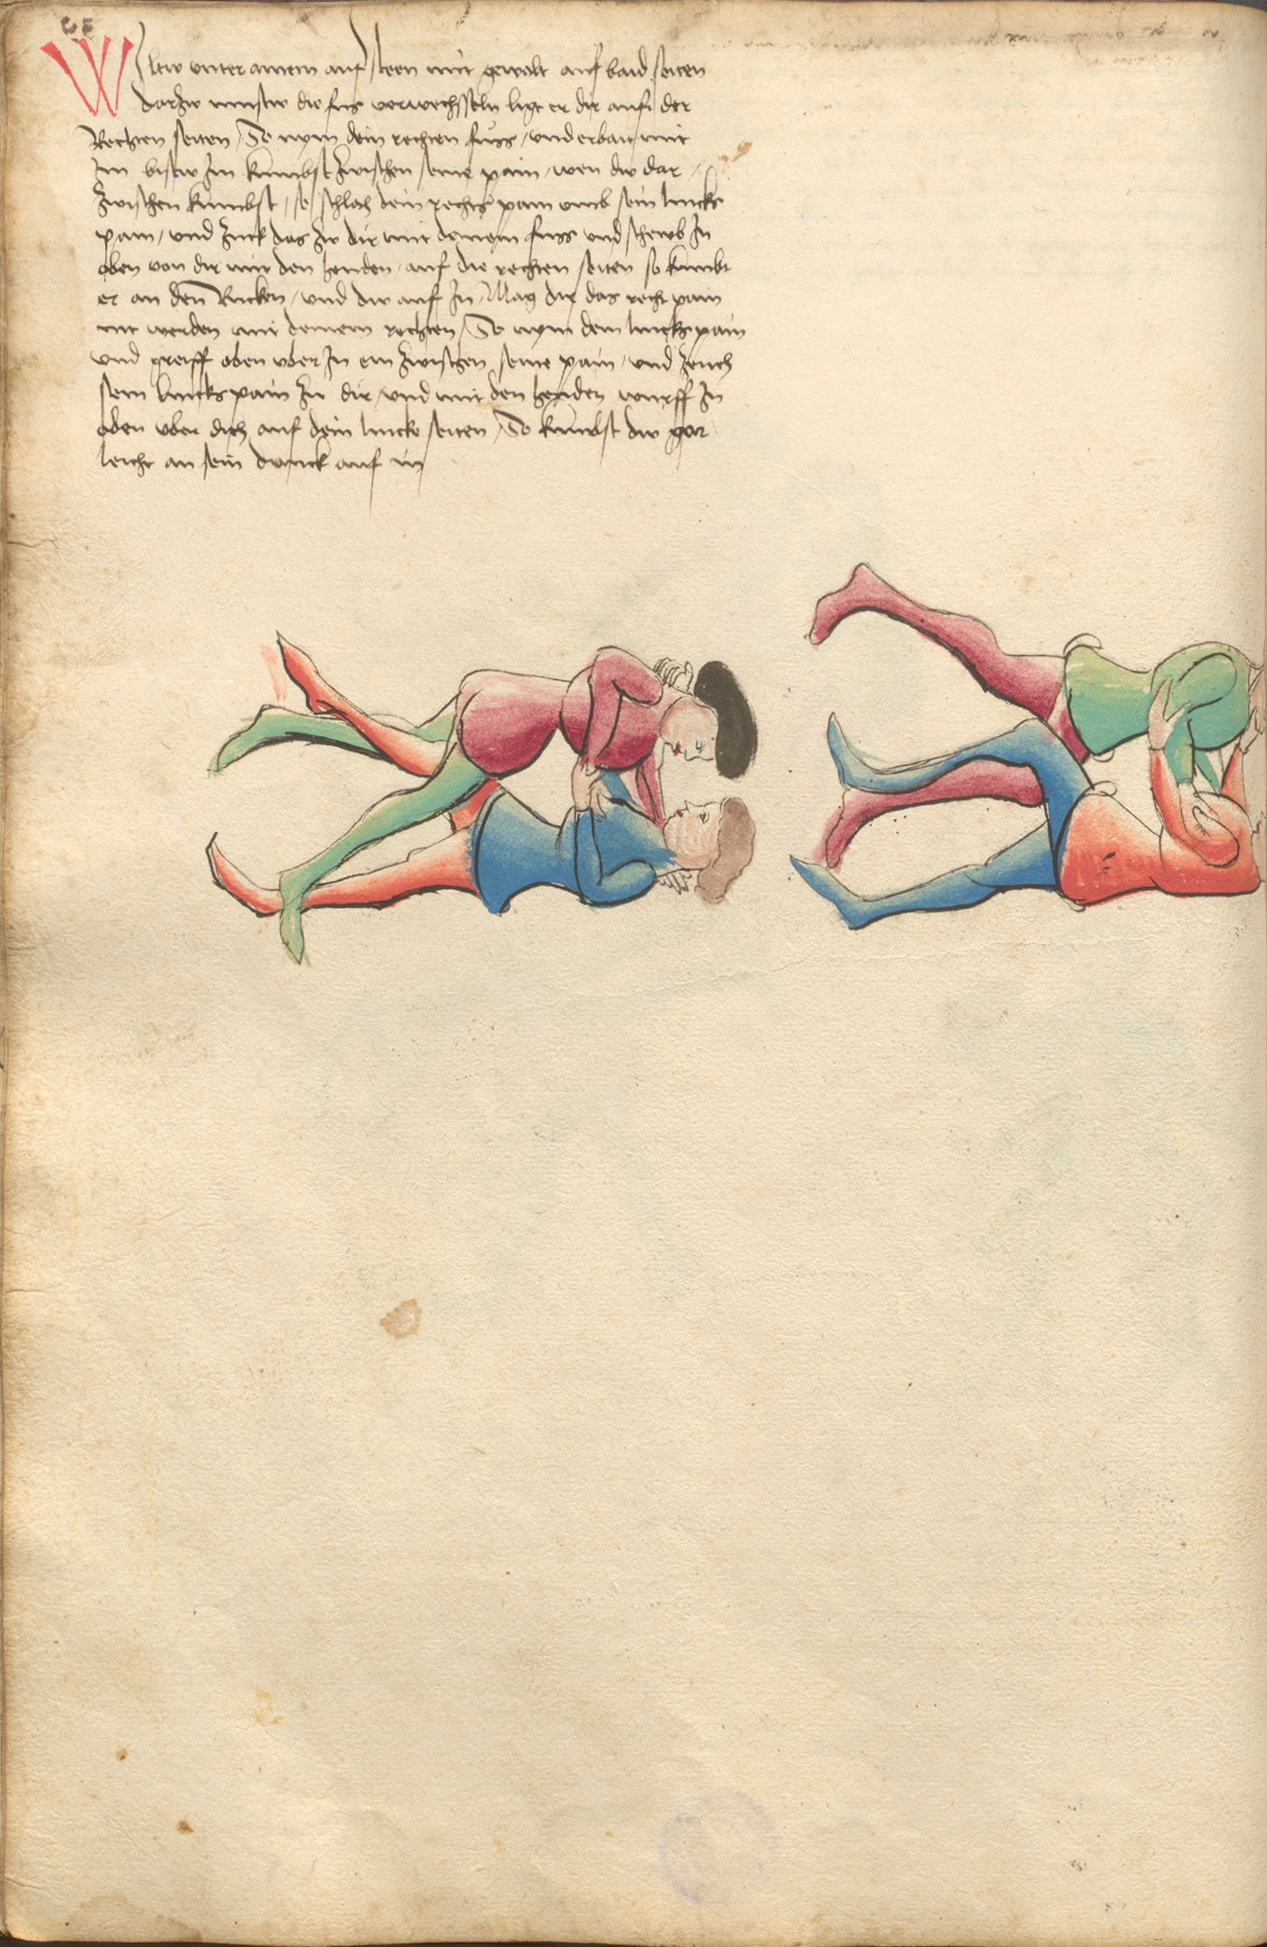 Wiltw vnter ainem auf steen mit gewalt auf baid seiten
darzw mustw die fus verwechsseln ligt er dir auff der
Rechten seiten / So nym dein rechten fuss / vnd erbait mit
Im bistw Im kumbst zwischen seine pain / wen dw dar
zwischen kumbst / so schlach dein rechts pain vmb sein lincks
pain / vnd zuck das zw dir mit deinem fuss vnd schewb In
oben von dir mit den henden / auf die rechten seiten so kumbt
er an den Rucken / vnd dw auf In / Mag dir das recht pain
nit werden mit deinem rechten / So nym dein lincks pain
vnd greiff oben vber In ein zwischen seine pain / vnd zeuch
sein lincks pain zu dir / vnd mit den henden wurff In
oben vber dich auf dein lincke seiten / So kumbst dw gar
leicht an sein danck auf in